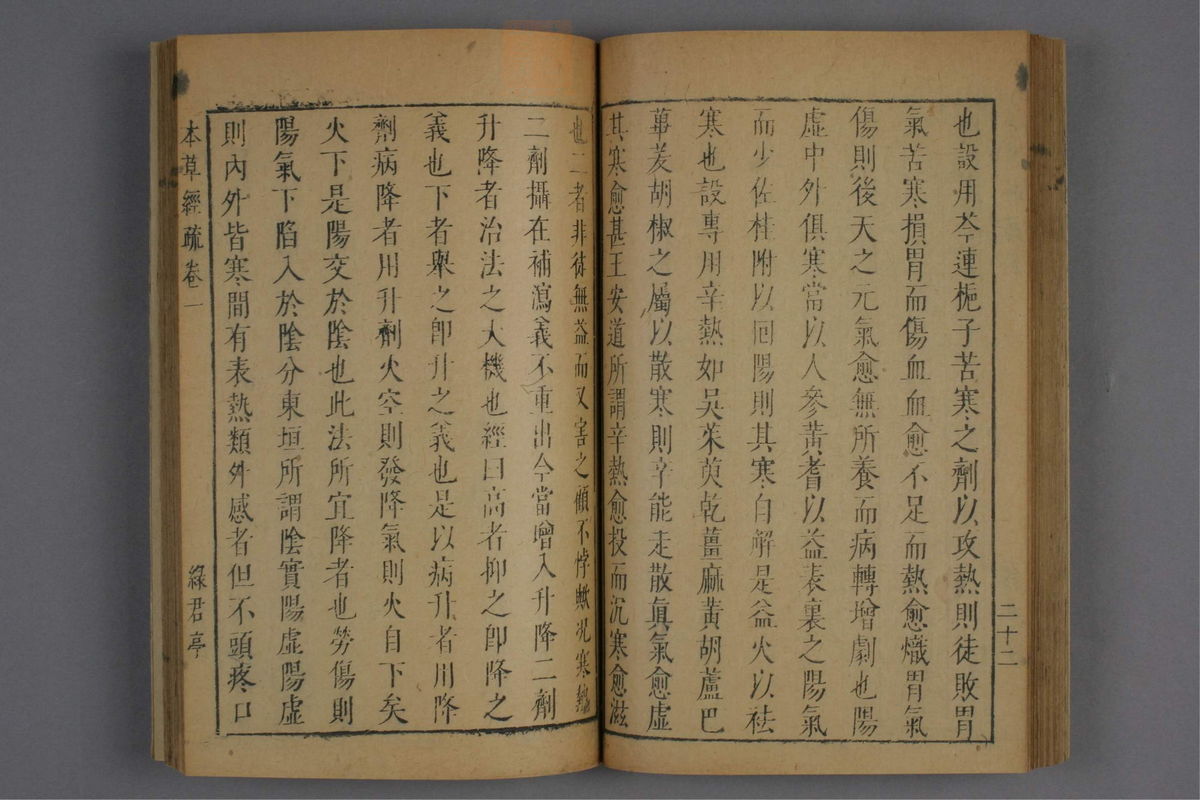 也設用芩連梔子苦寒之劑以攻熱則徒敗胃
氣苦寒損胃而傷血血愈不足而熱愈熾胃氣
傷則後天之元氣愈無所養而病轉增劇也陽
虛中外俱寒當以人參黃耆以益表裏之陽氣
而少佐桂附以回陽則其寒自解是益火以袪
寒也設專用辛熱如吳茱萸乾薑麻黃胡蘆巴
蓽茇胡椒之屬以散寒則辛能走散眞氣愈虛
其寒愈甚王安道所謂辛熱愈投而沉寒愈滋
二十二
也二者非徒無益而又害之顧不悖歟況寒
二劑攝在補瀉義不重出今當增入升降二劑
升降者治法之大機也經曰高者抑之卽降之
義也下者舉之卽升之義也是以病升者用降
劑病降者用升劑火空則發降氣則火自下矣
火下是陽交於陰也此法所宜降者也勞傷則
陽氣下陷入於陰分東垣所謂陰實陽虛陽虛
則內外皆寒間有表熱類外感者但不頭疼口
本草經疏卷一
綠君亭